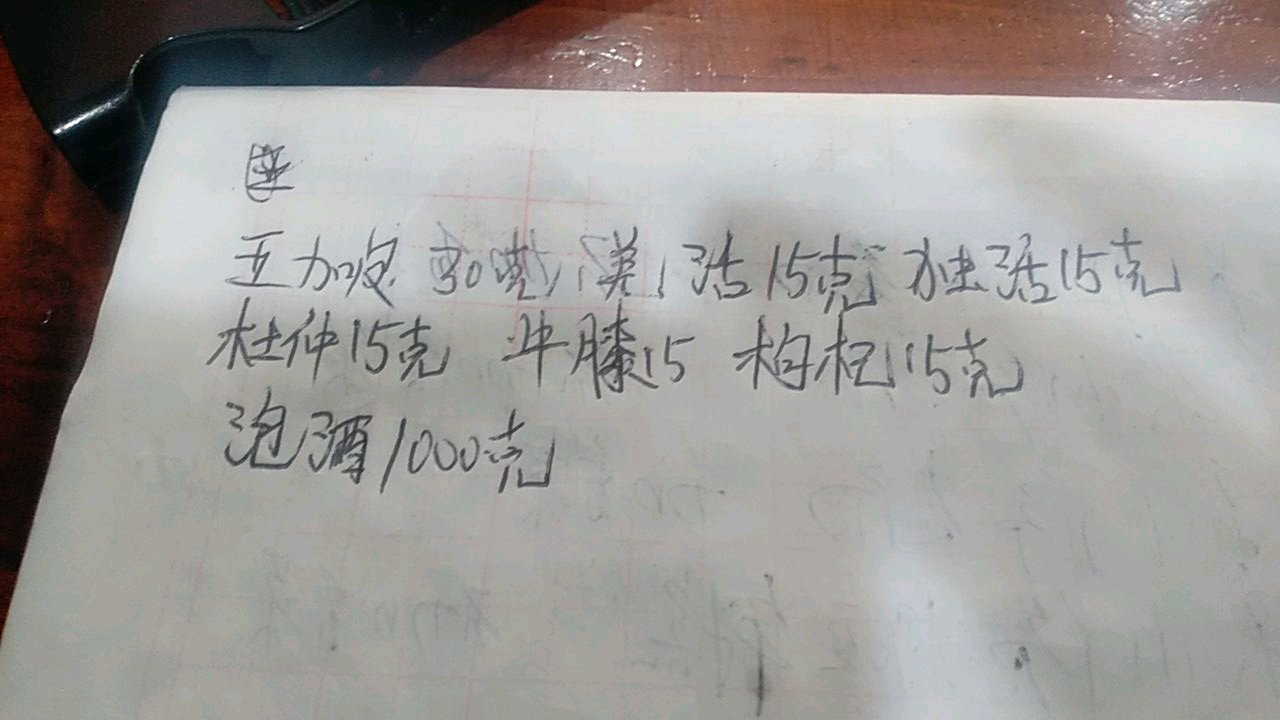 五加皮 30克 羌活15克 独活15克
杜仲15克 牛膝15 枸杞15克
泡酒1000克